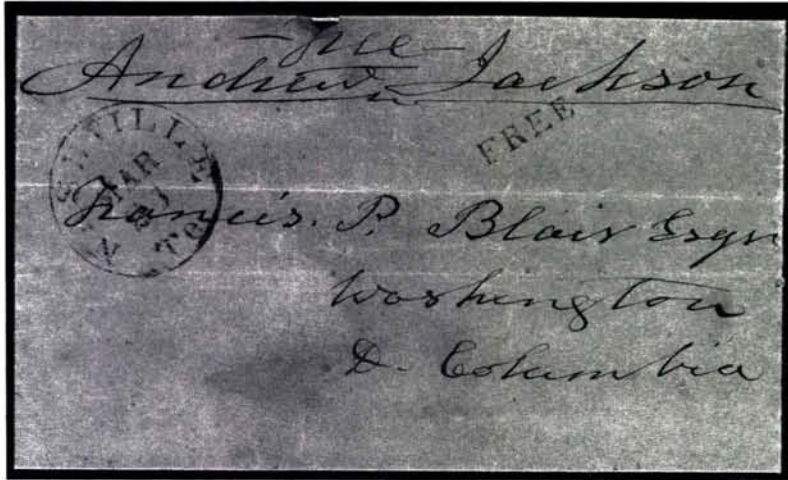 -Free-
Andrew Jackson
FREE
MAR
Francis. P. Blair Esqr
Washington
D. Columbia